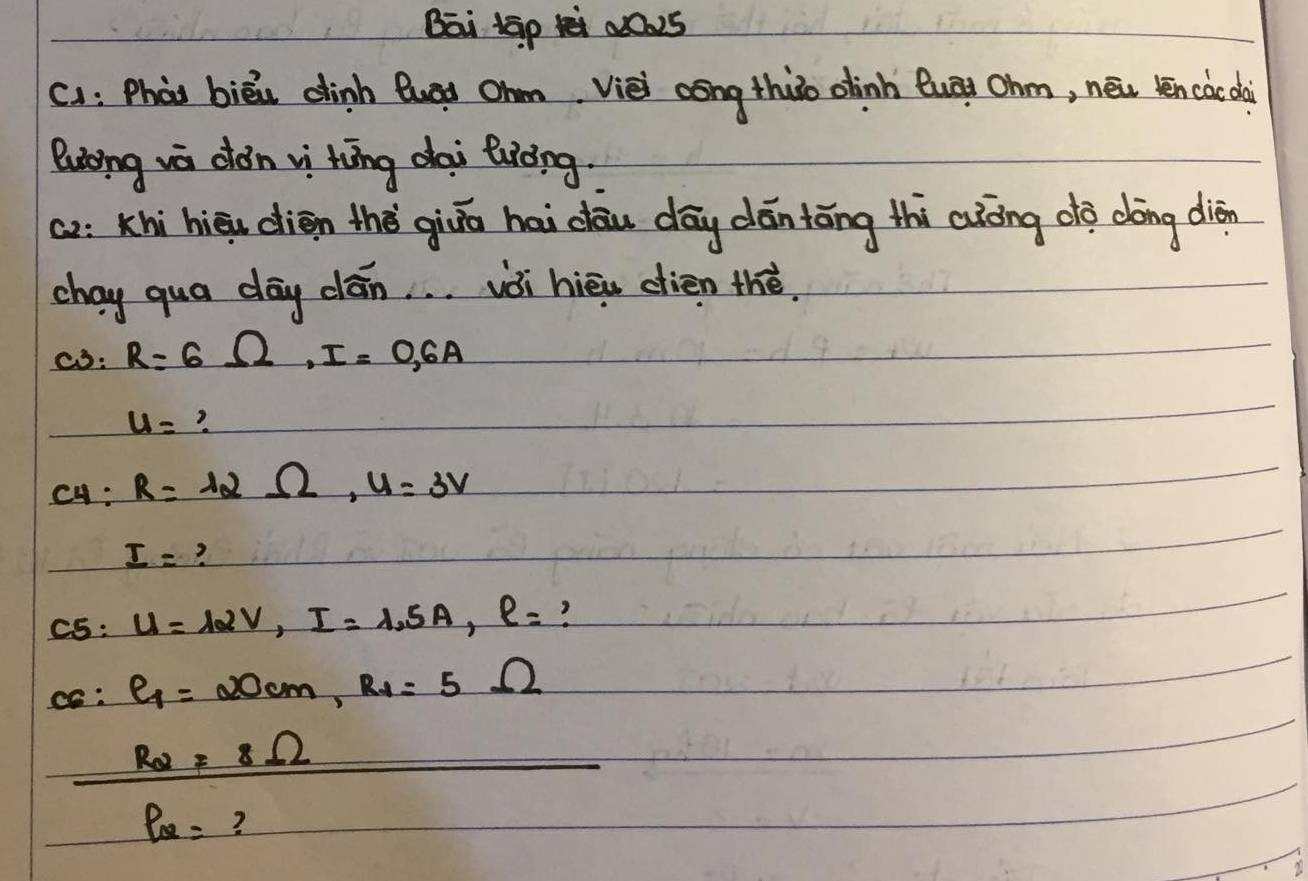 Bài tập tết 2025
C1: Phát biểu định luật Ohm. Viết công thức định luật Ohm, nêu tên các đại
lượng và đơn vị từng đại lượng.
C2: Khi hiệu điện thế giữa hai đầu dây dẫn tăng thì cường độ dòng điện
chạy qua dây dẫn ... với hiệu điện thế.
C3: R = 6 Ω, I = 0,6A
U = ?
C4: R = 12 Ω, U = 3V
I = ?
C5: U = 12V, I = 1,5A, l = ?
C6: l1 = 20cm, R1 = 5 Ω
R2 = 8 Ω
l2 = ?